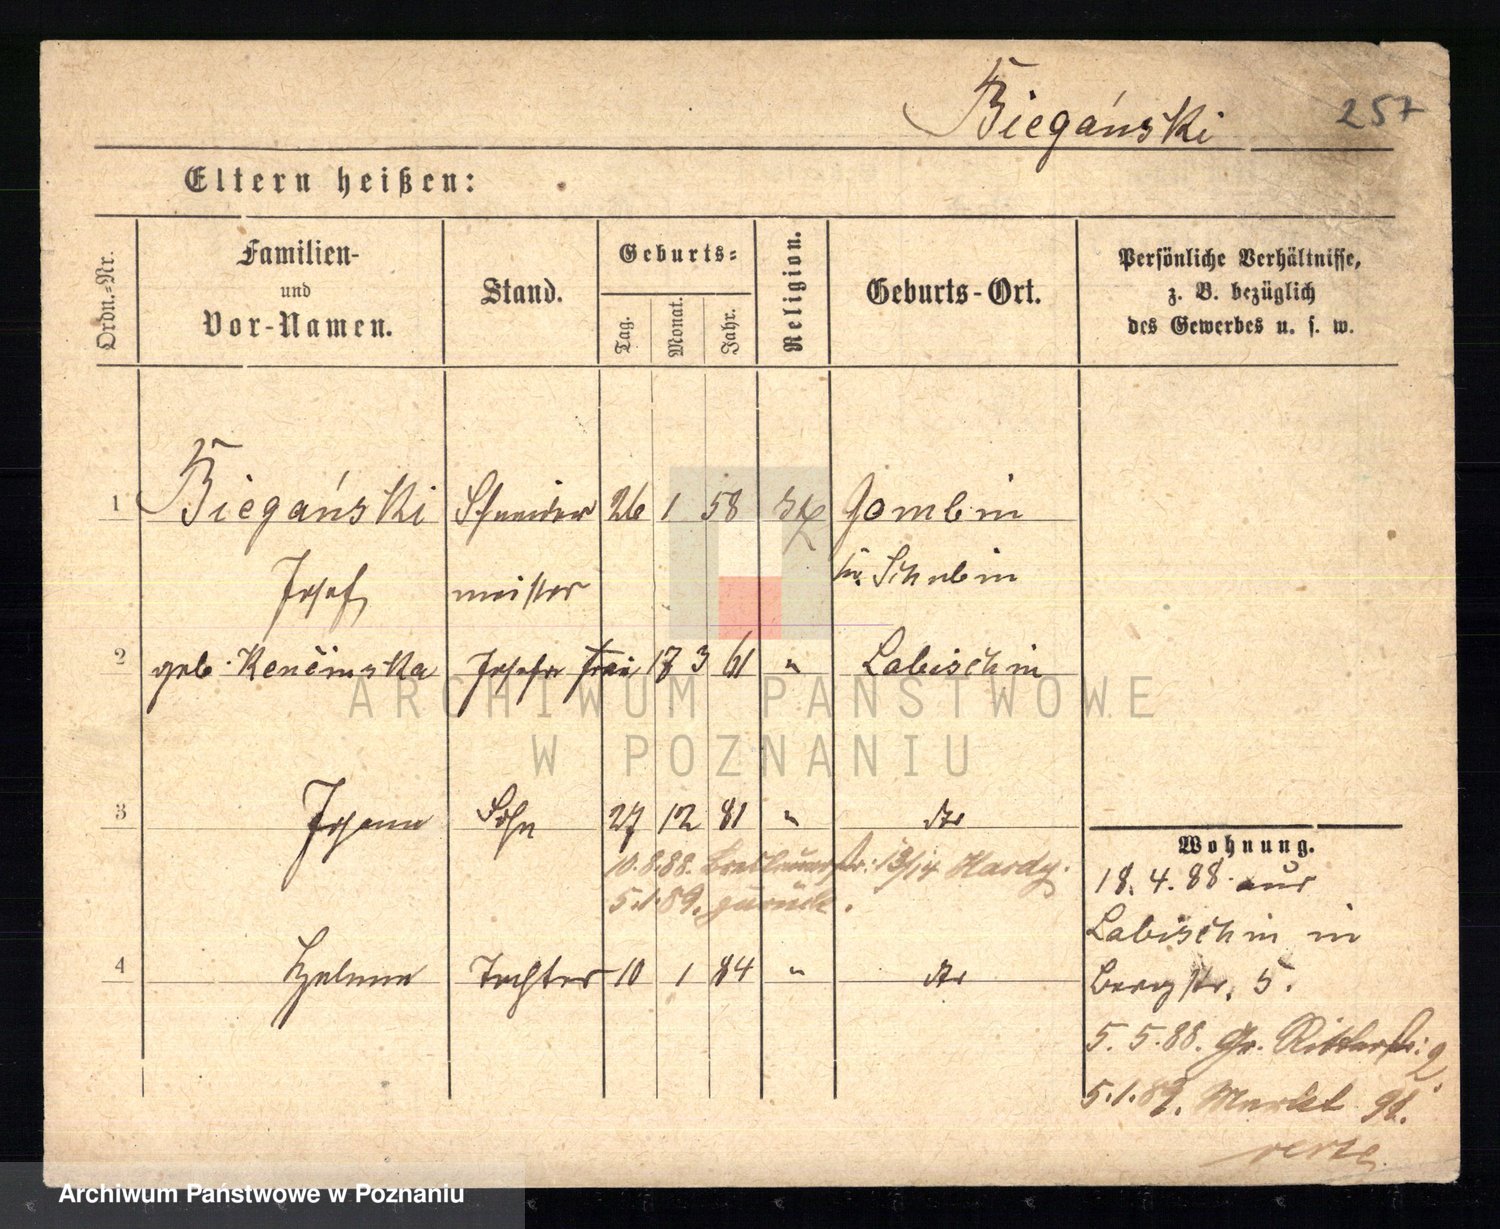 Biegański
257
Eltern heißen:
Ordn.-Nr.
Familien-
und
Vor-Namen.
Stand.
Geburts-
Tag.
Monat.
Jahr.
Religion.
Geburts-Ort.
Persönliche Verhältnisse,
z. B. bezüglich
des Gewerbes u. s. w.
1 Biegański Schneider 26 1 58 Gombin
Josef meister Schubin
2 geb. Josefa Frau 17 3 61 " Labischin
ARCHIWUM PAŃSTWOWE
W POZNANIU
3 Johann Sohn 27 12 81 " dto
10.8.88. Breslauerstr. 13/14 Hardy.
5.1.89. zurück.
4 Helene Tochter 10 1 84 " dto
Wohnung.
18.4.88 aus
Labischin in
Bergstr. 5.
5.5.88. Gr. Ritterstr: 2.
5.1.89. Markt 91.
verte
Archiwum Państwowe w Poznaniu